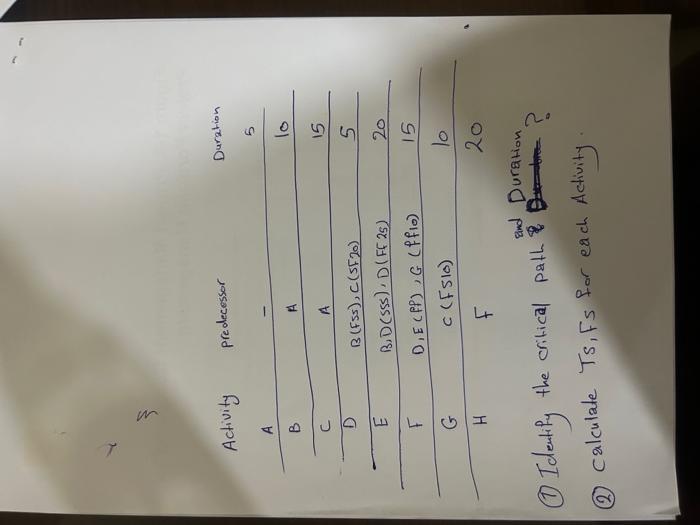 Activity predecessor Duration
A - 5
B A 10
C A 15
D B(FS5), C(SF20) 5
E B, D(SS5), D(FF25) 20
F D, E(FF), G(FF10) 15
G C(FS10) 10
H F 20
① Identify the critical path & and Duration ?
② calculate TS, FS for each Activity.